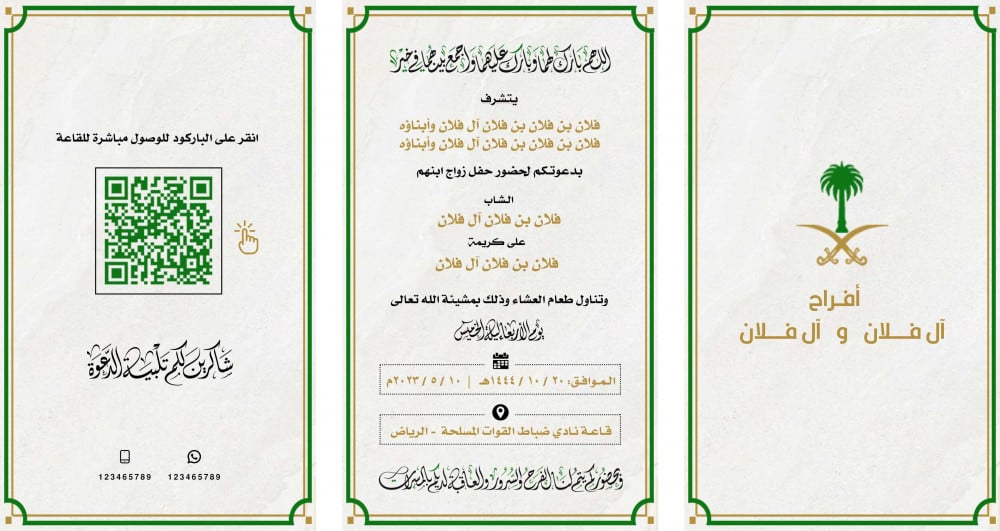 أفراح
آل فـــلان و آل فـــلان
اللهم بارك لهما وبارك عليهما واجمع بينهما في خير
يتشرف
فلان بن فلان بن فلان آل فلان وأبناؤه
فلان بن فلان بن فلان آل فلان وأبناؤه
بدعوتكم لحضور حفل زواج ابنهم
الشاب
فلان بن فلان آل فلان
على كريمة
فلان بن فلان آل فلان
وتناول طعام العشاء وذلك بمشيئة الله تعالى
يوم الأربعاء ليلة الخميس
الموافق: ٢٠ / ١٠ / ١٤٤٤هـ | ١٠ / ٥ / ٢٠٢٣م
قاعة نادي ضباط القوات المسلحة - الرياض
وبحضوركم يتم لنا الفرح والسرور والعاقبة لديكم بالمسرات
انقر على الباركود للوصول مباشرة للقاعة
شاكرين لكم تلبية الدعوة
123465789 123465789